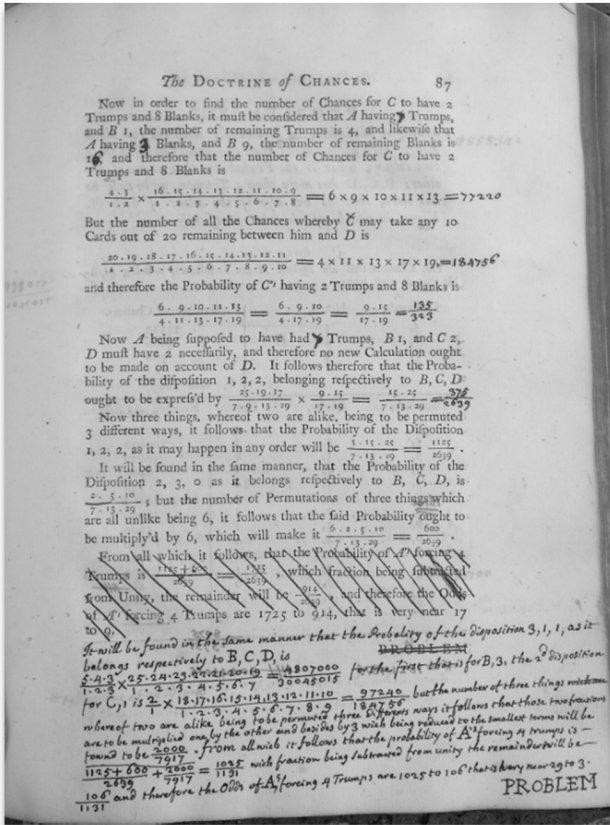 The DOCTRINE of CHANCES. 87
Now in order to find the number of Chances for C to have 2
Trumps and 8 Blanks, it must be considered that A having Trumps,
and B 1, the number of remaining Trumps is 4, and likewise that
A having 3 Blanks, and B 9, the number of remaining Blanks is
16 and therefore that the number of Chances for C to have 2
Trumps and 8 Blanks is
4 . 3 / 1 . 2 × 16 . 15 . 14 . 13 . 12 . 11 . 10 . 9 / 1 . 2 . 3 . 4 . 5 . 6 . 7 . 8 = 6 × 9 × 10 × 11 × 13 = 77220
But the number of all the Chances whereby C may take any 10
Cards out of 20 remaining between him and D is
20 . 19 . 18 . 17 . 16 . 15 . 14 . 13 . 12 . 11 / 1 . 2 . 3 . 4 . 5 . 6 . 7 . 8 . 9 . 10 = 4 × 11 × 13 × 17 × 19, = 184756
and therefore the Probability of C's having 2 Trumps and 8 Blanks is
6 . 9 . 10 . 11 . 13 / 4 . 11 . 13 . 17 . 19 = 6 . 9 . 10 / 4 . 17 . 19 = 9 . 15 / 17 . 19 = 135 / 323
Now A being supposed to have had Trumps, B 1, and C 2,
D must have 2 necessarily, and therefore no new Calculation ought
to be made on account of D. It follows therefore that the Proba-
bility of the disposition 1, 2, 2, belonging respectively to B, C, D
ought to be express'd by 25 . 19 . 17 / 7 . 9 . 13 . 29 × 9 . 15 / 17 . 19 = 15 . 25 / 7 . 13 . 29 = 375 / 2639
Now three things, whereof two are alike, being to be permuted
3 different ways, it follows that the Probability of the Disposition
1, 2, 2, as it may happen in any order will be 3 . 15 . 25 / 7 . 13 . 29 = 1125 / 2639 .
It will be found in the same manner, that the Probability of the
Disposition 2, 3, 0 as it belongs respectively to B, C, D, is
2 . 5 . 10 / 7 . 13 . 29 ; but the number of Permutations of three things which
are all unlike being 6, it follows that the said Probability ought to
be multiply'd by 6, which will make it 6 . 2 . 5 . 10 / 7 . 13 . 29 = 600 / 2639 .
From all which it follows, that the Probability of A's forcing 4
Trumps is 1125 + 600 / 2639 = 1725 / 2639 , which fraction being subtracted
from Unity, the remainder will be 914 / 2639 , and therefore the Odds
of A's forcing 4 Trumps are 1725 to 914, that is very near 17
to 9.
PROBLEM
It will be found in the same manner that the Probality of the disposition 3, 1, 1, as it
belongs respectively to B, C, D, is
5.4.3 / 1.2.3 × 25.24.23.22.21.20.19 / 1.2.3.4.5.6.7 = 4807000 / 30045015 for the first that is for B, 3, the 2d disposition
for C, 1 is 2 / 1 × 18.17.16.15.14.13.12.11.10 / 1.2.3.4.5.6.7.8.9 = 97240 / 184756 but the number of three things
whereof two are alike being to be permuted three different ways it follows that those two fractions
are to be multiplied one by the other and besides by 3 wich being reduced to the smallest terms will be
found to be 2000 / 7917 . from all wich it follows that the probability of A's forcing 4 trumps is
1125 + 600 / 2639 + 2000 / 7917 = 1025 / 1131 wich fraction being subtracted from unity the remainder will be
106 / 1131 and therefore the Odds of A's forcing 4 Trumps are 1025 to 106 that is very near 29 to 3.
PROBLEM